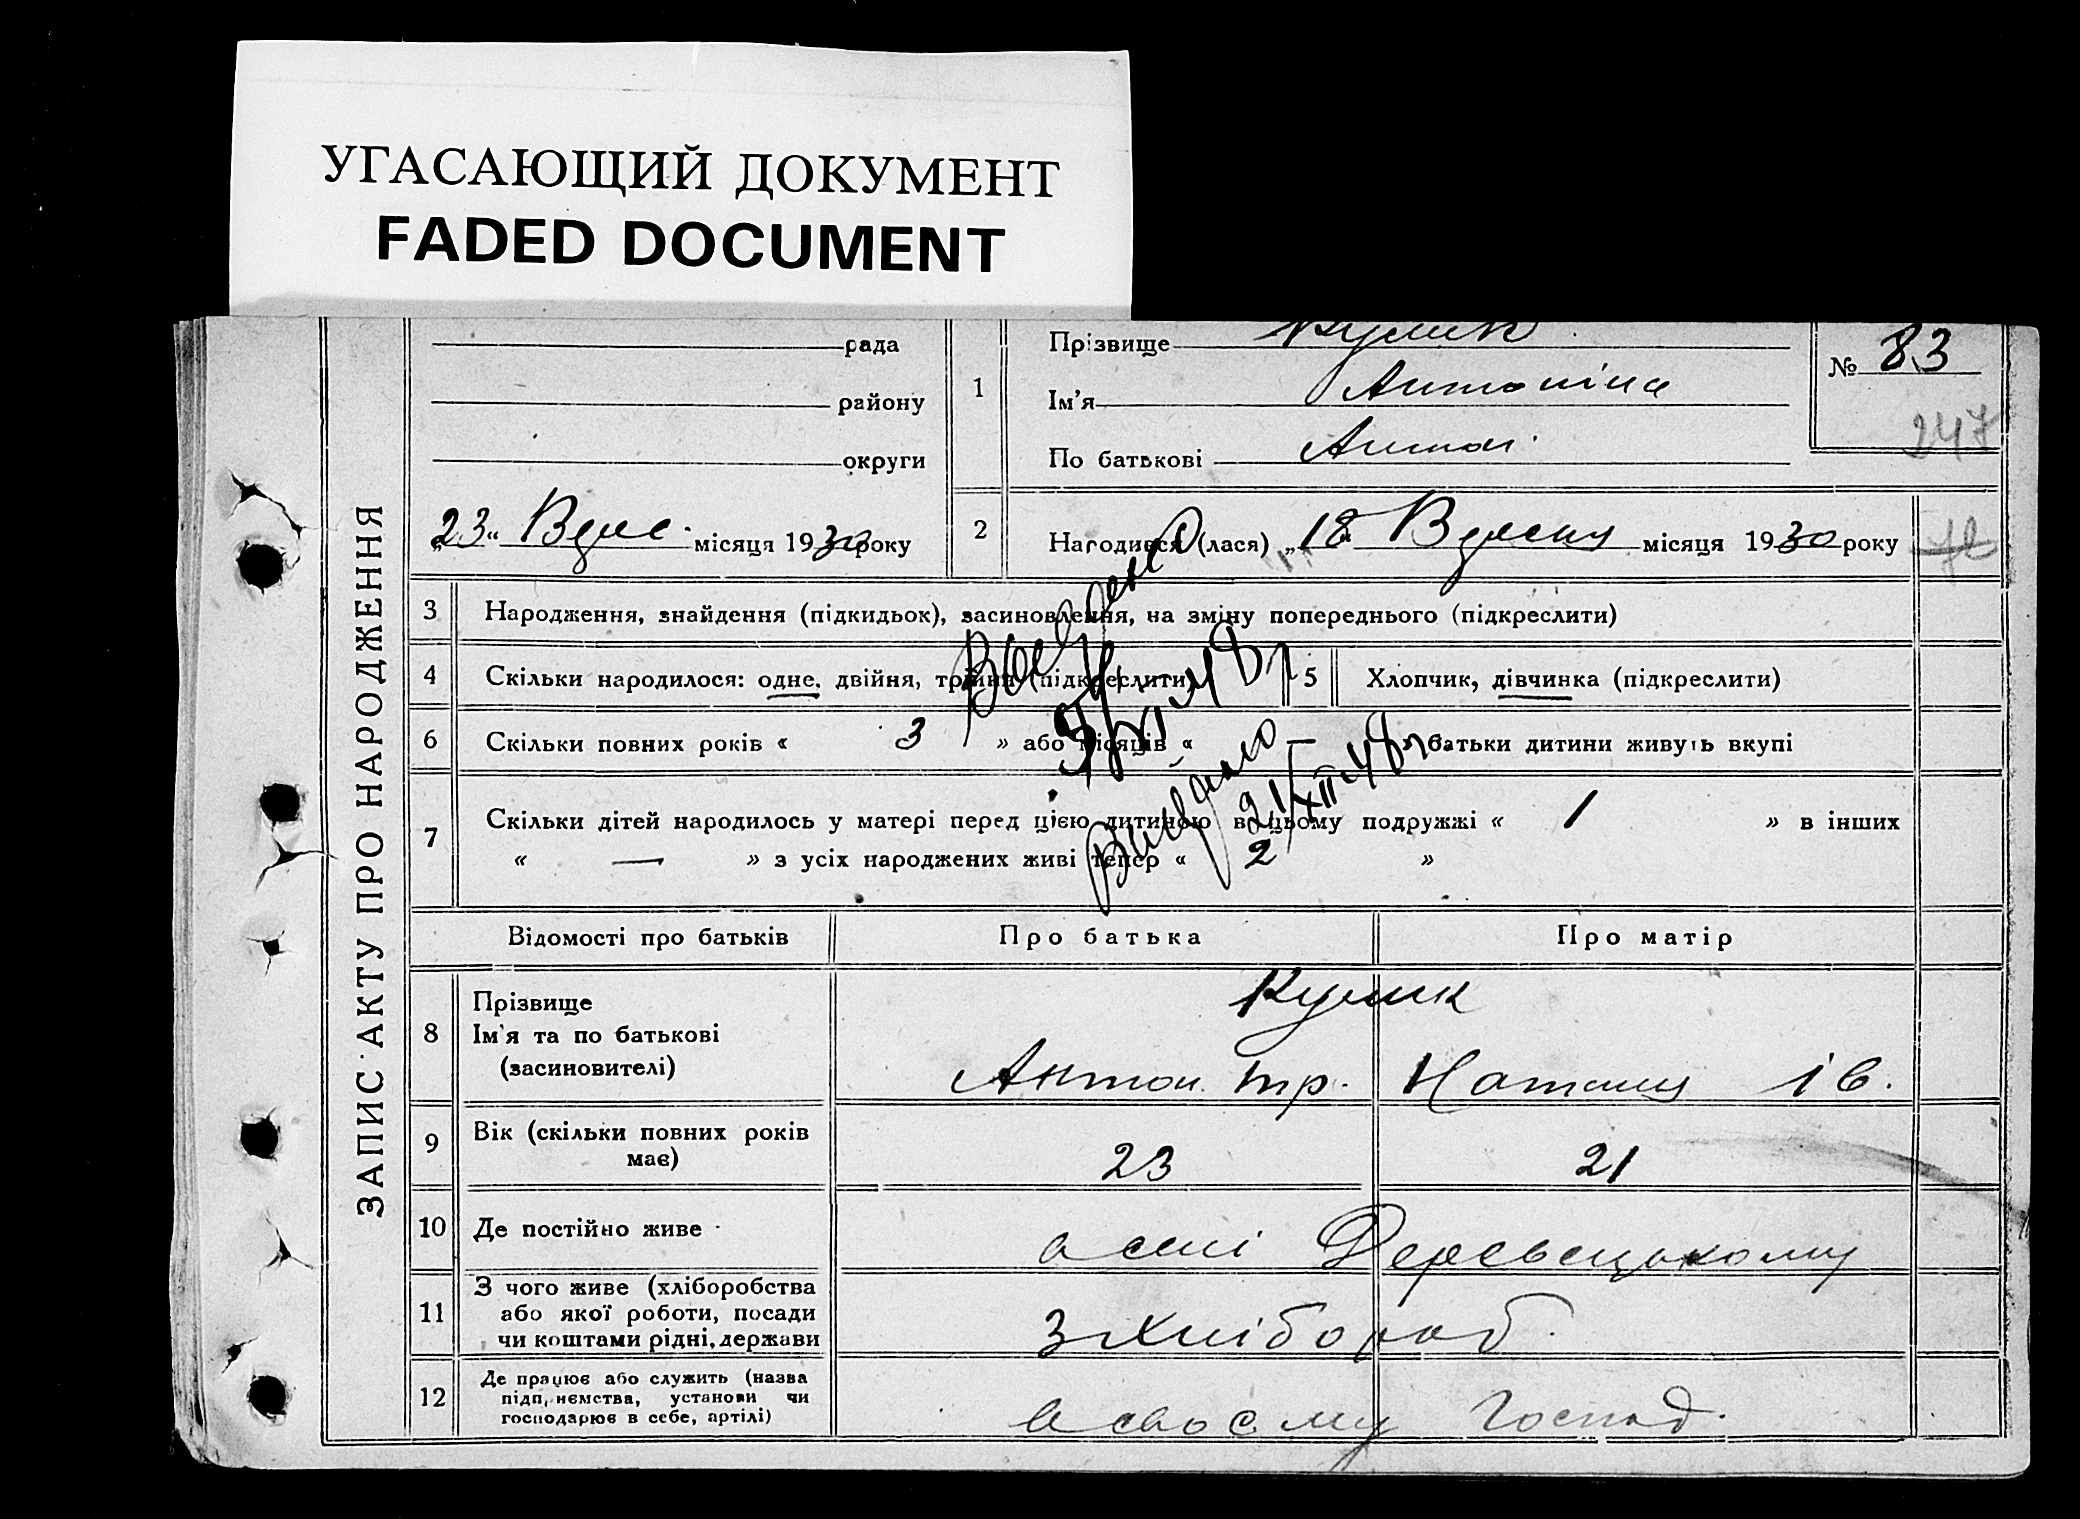 УГАСАЮЩИЙ ДОКУМЕНТ
FADED DOCUMENT
ЗАПИС АКТУ ПРО НАРОДЖЕННЯ
рада
району
округи
„23“ Вере. місяця 1930 року
1
Прізвище Кулик
Ім'я Антоніна
По батькові Антон.
№ 83
247
2
Народився (лася) „18“ Вересня місяця 1930 року
3 Народження, знайдення (підкидьок), засиновлення, на зміну попереднього (підкреслити)
4 Скільки народилося: одне, двійня, трійня (підкреслити)
5 Хлопчик, дівчинка (підкреслити)
6 Скільки повних років « 3 » або місяців « — » батьки дитини живуть вкупі
7 Скільки дітей народилось у матері перед цією дитиною в цьому подружжі « 1 » в інших
« — » з усіх народжених живі тепер « 2 »
21/XII-48г
Відомості про батьків Про батька Про матір
8 Прізвище
Ім'я та по батькові
(засиновителі)
Кулик
Антон. Тр. Наталя Ів.
9 Вік (скільки повних років
має)
23 21
10 Де постійно живе
в селі Деревецькому
11 З чого живе (хліборобства
або якої роботи, посади
чи коштами рідні, держави
з хлібороб.
12 Де працює або служить (назва
підприємства, установи чи
господарює в себе, артілі)
в своєму господ.